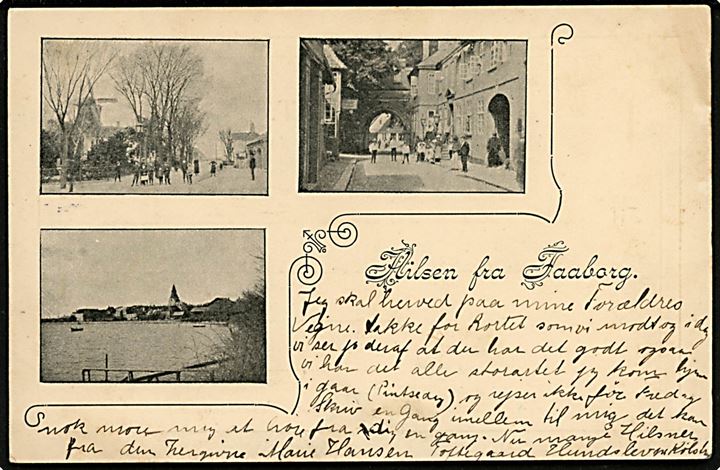 Hilsen fra Faaborg.
Jeg skal herved paa mine Forældres
Vegne takke for Kortet som vi modtog i dag
vi ser jo deraf at der har det godt ogsaa
vi har det alle storartet jeg kom hjem
i gaar (Pintsedag) og rejser ikke før Fredag
Skriv en Gang imellem til mig det kan
nok more mig at høre fra dig en gang. Nu mange Hilsner
fra den hengivne Marie Hansen Toftegaard Hundslev